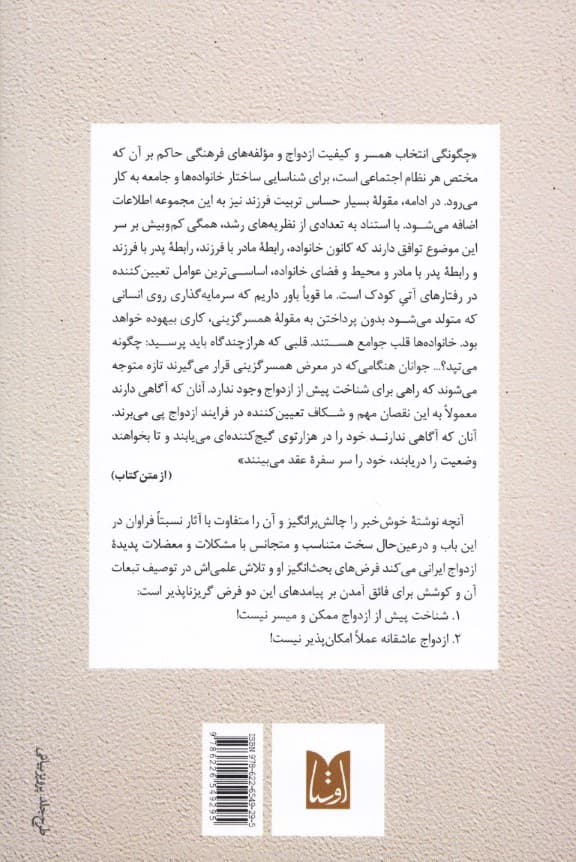 «چگونگی انتخاب همسر و کیفیت ازدواج و مؤلفه‌های فرهنگی حاکم بر آن که
مختص هر نظام اجتماعی است، برای شناسایی ساختار خانواده‌ها و جامعه به کار
می‌رود. در ادامه، مقولهٔ بسیار حساس تربیت فرزند نیز به این مجموعه اطلاعات
اضافه می‌شود. با استناد به تعدادی از نظریه‌های رشد، همگی کم‌وبیش بر سر
این موضوع توافق دارند که کانون خانواده، رابطهٔ مادر با فرزند، رابطهٔ پدر با فرزند
و رابطهٔ پدر با مادر و محیط و فضای خانواده، اساسی‌ترین عوامل تعیین‌کننده
در رفتارهای آتیِ کودک است. ما قویاً باور داریم که سرمایه‌گذاری روی انسانی
که متولد می‌شود بدون پرداختن به مقولهٔ همسرگزینی، کاری بیهوده خواهد
بود. خانواده‌ها قلب جوامع هستند. قلبی که هرازچندگاه باید پرسید: چگونه
می‌تپد؟... جوانان هنگامی‌که در معرض همسرگزینی قرار می‌گیرند تازه متوجه
می‌شوند که راهی برای شناخت پیش از ازدواج وجود ندارد. آنان که آگاهی دارند
معمولاً به این نقصان مهم و شکاف تعیین‌کننده در فرایند ازدواج پی می‌برند.
آنان که آگاهی ندارند خود را در هزارتوی گیج‌کننده‌ای می‌یابند و تا بخواهند
وضعیت را دریابند، خود را سر سفرهٔ عقد می‌بینند»
(از متن کتاب)
آنچه نوشتهٔ خوش‌خبر را چالش‌برانگیز و آن را متفاوت با آثار نسبتاً فراوان در
این باب و درعین‌حال سخت متناسب و متجانس با مشکلات و معضلات پدیدهٔ
ازدواج ایرانی می‌کند فرض‌های بحث‌انگیز او و تلاش علمی‌اش در توصیف تبعات
آن و کوشش برای فائق آمدن بر پیامدهای این دو فرض گریزناپذیر است:
۱. شناخت پیش از ازدواج ممکن و میسر نیست!
۲. ازدواج عاشقانه عملاً امکان‌پذیر نیست!
اوستا
ISBN 978-622-6549-29-5
9786226549295